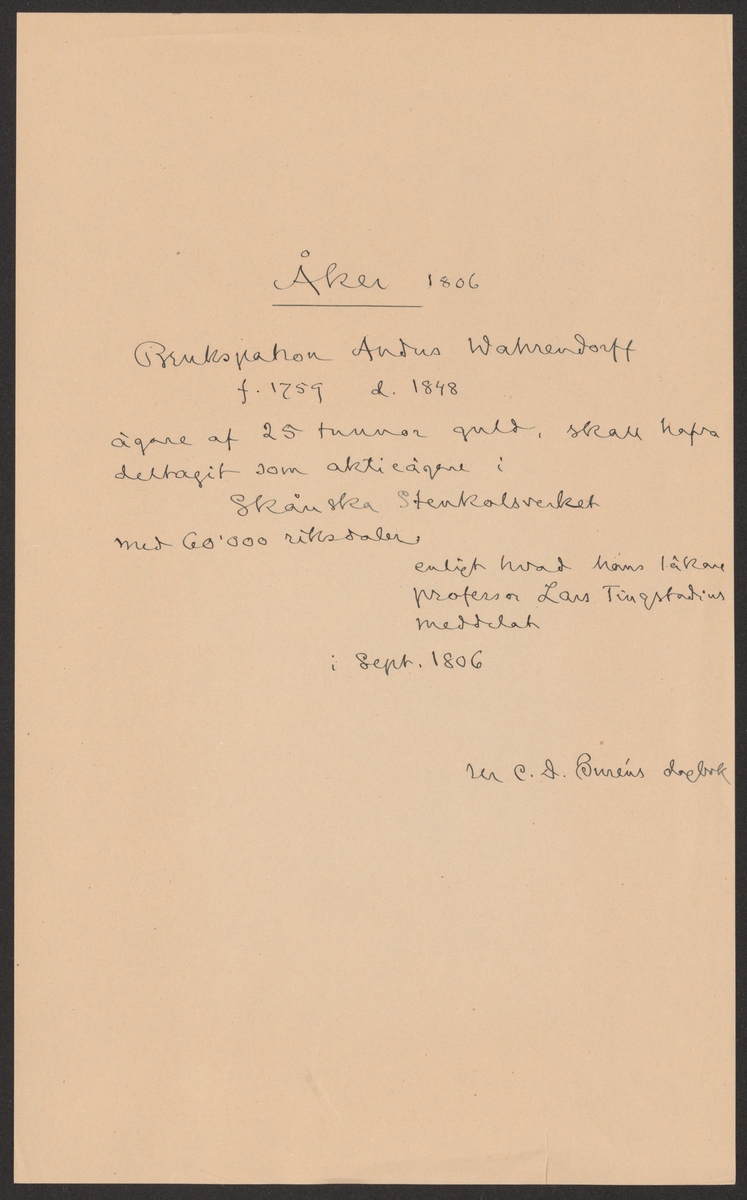 Åker 1806
Brukspatron Anders Wahrendorff
f. 1759 d. 1848
ägare af 25 tunnor guld, skall hafva
deltagit som aktieägare i
Skånska Stenkolsverket
med 60'000 riksdaler,
enligt hvad hans läkare
professor Lars Tingstadius
meddelat
i Sept. 1806
ur C. D. Buréns dagbok